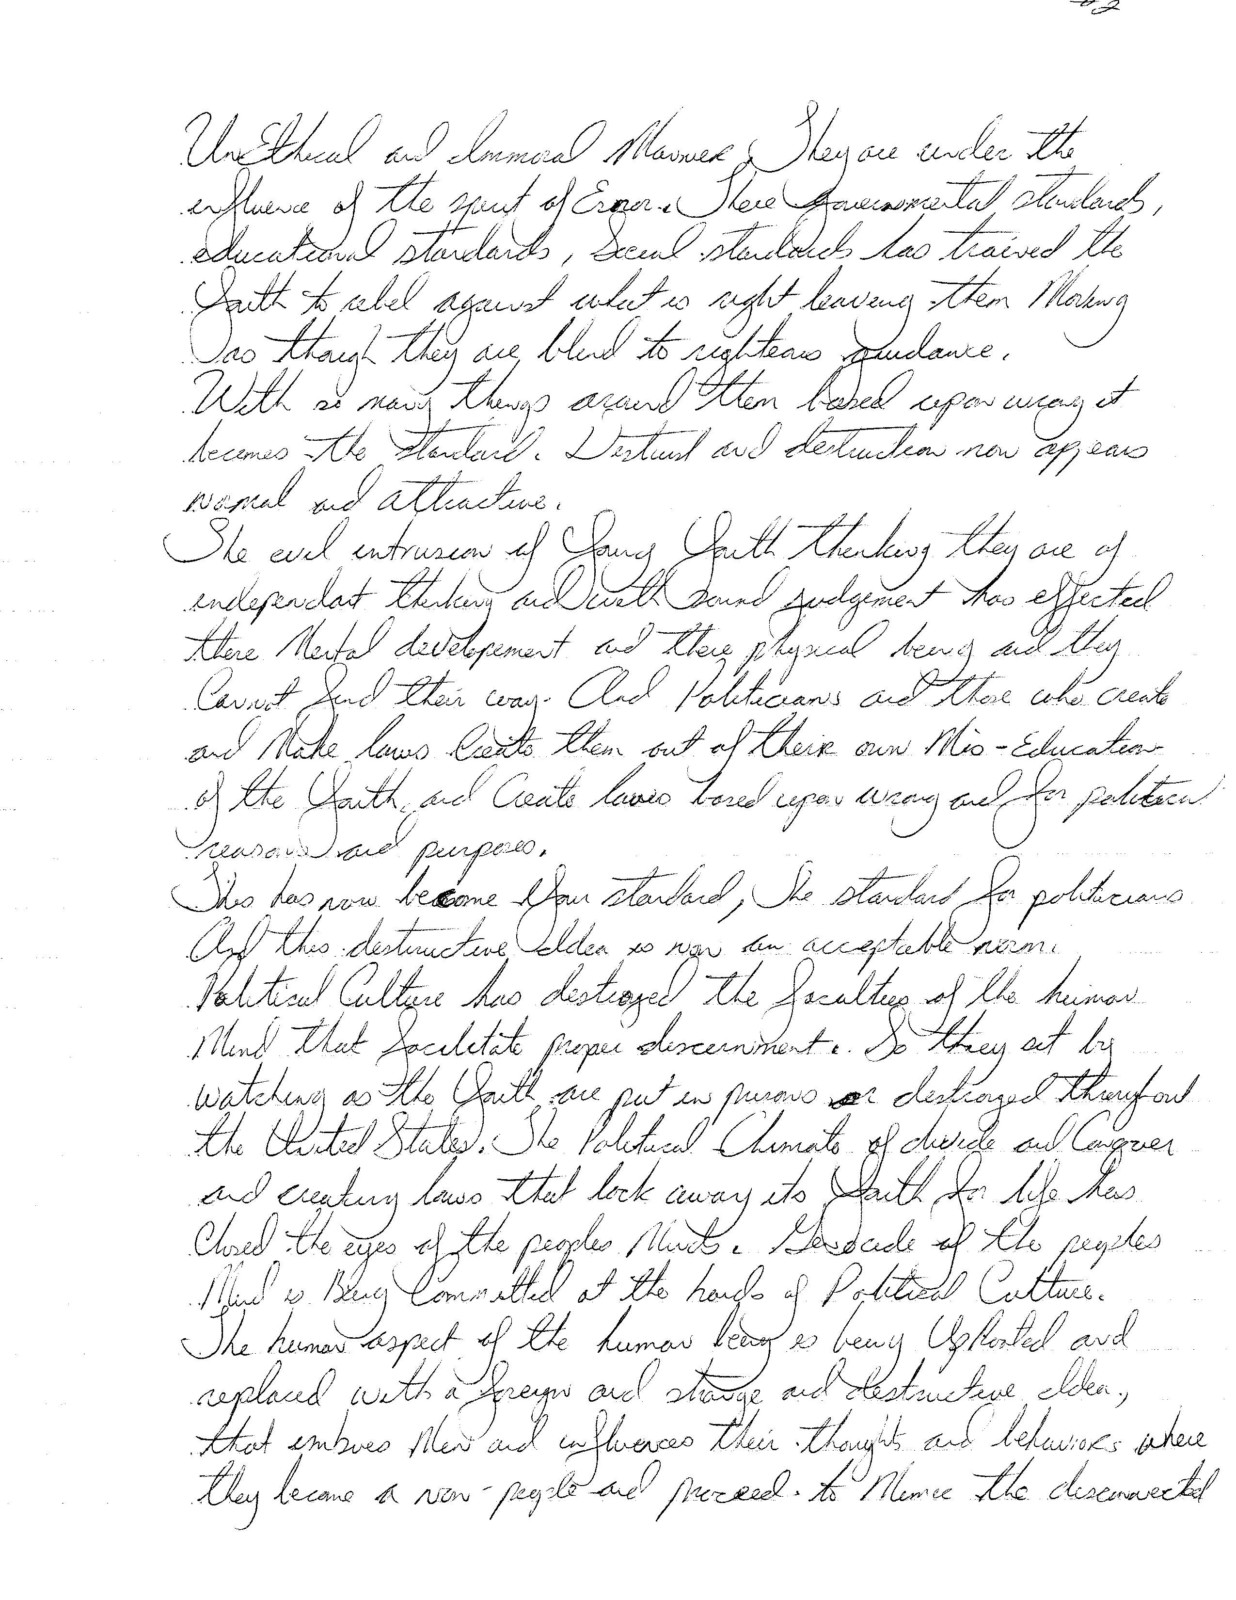 #2
UnEthical and Immoral Manner. They are under the
influence of the spirit of Error. There governmental standards,
educational standards, Social standards has trained the
Youth to rebel against what is right leaving them Moving
as though they are blind to righteous guidance.
With so many things around them based upon wrong it
becomes the standard. Distrust and destruction now appears
normal and attractive.
The evil intrusion of Young Youth thinking they are of
independant thinking and with sound judgement has effected
there Mental developement and there physical being and they
Cannot find their way. And Politicians and those who create
and Make laws Create them out of their own Mis-Education
of the Youth, and Create laws based upon wrong and for political
reasons and purposes.
This has now become Your standard, The standard for politicians
And this destructive Idea is now an acceptable norm.
Political Culture has destroyed the faculties of the human
Mind that facilitate proper discernment. So they sit by
watching as the Youth are put in prisons or destroyed throughout
the United States. The Political Climate of divide and Conquer
and creating laws that lock away its Youth for life has
Closed the eyes of the peoples Minds. Genocide of the peoples
Mind is Being Committed at the hands of Political Culture.
The human aspect of the human being is being UpRooted and
replaced with a foreign and strange and destructive Idea,
that imbues Men and influences their thoughts and behaviors where
they become a non-people and proceed to Mimic the disconnected